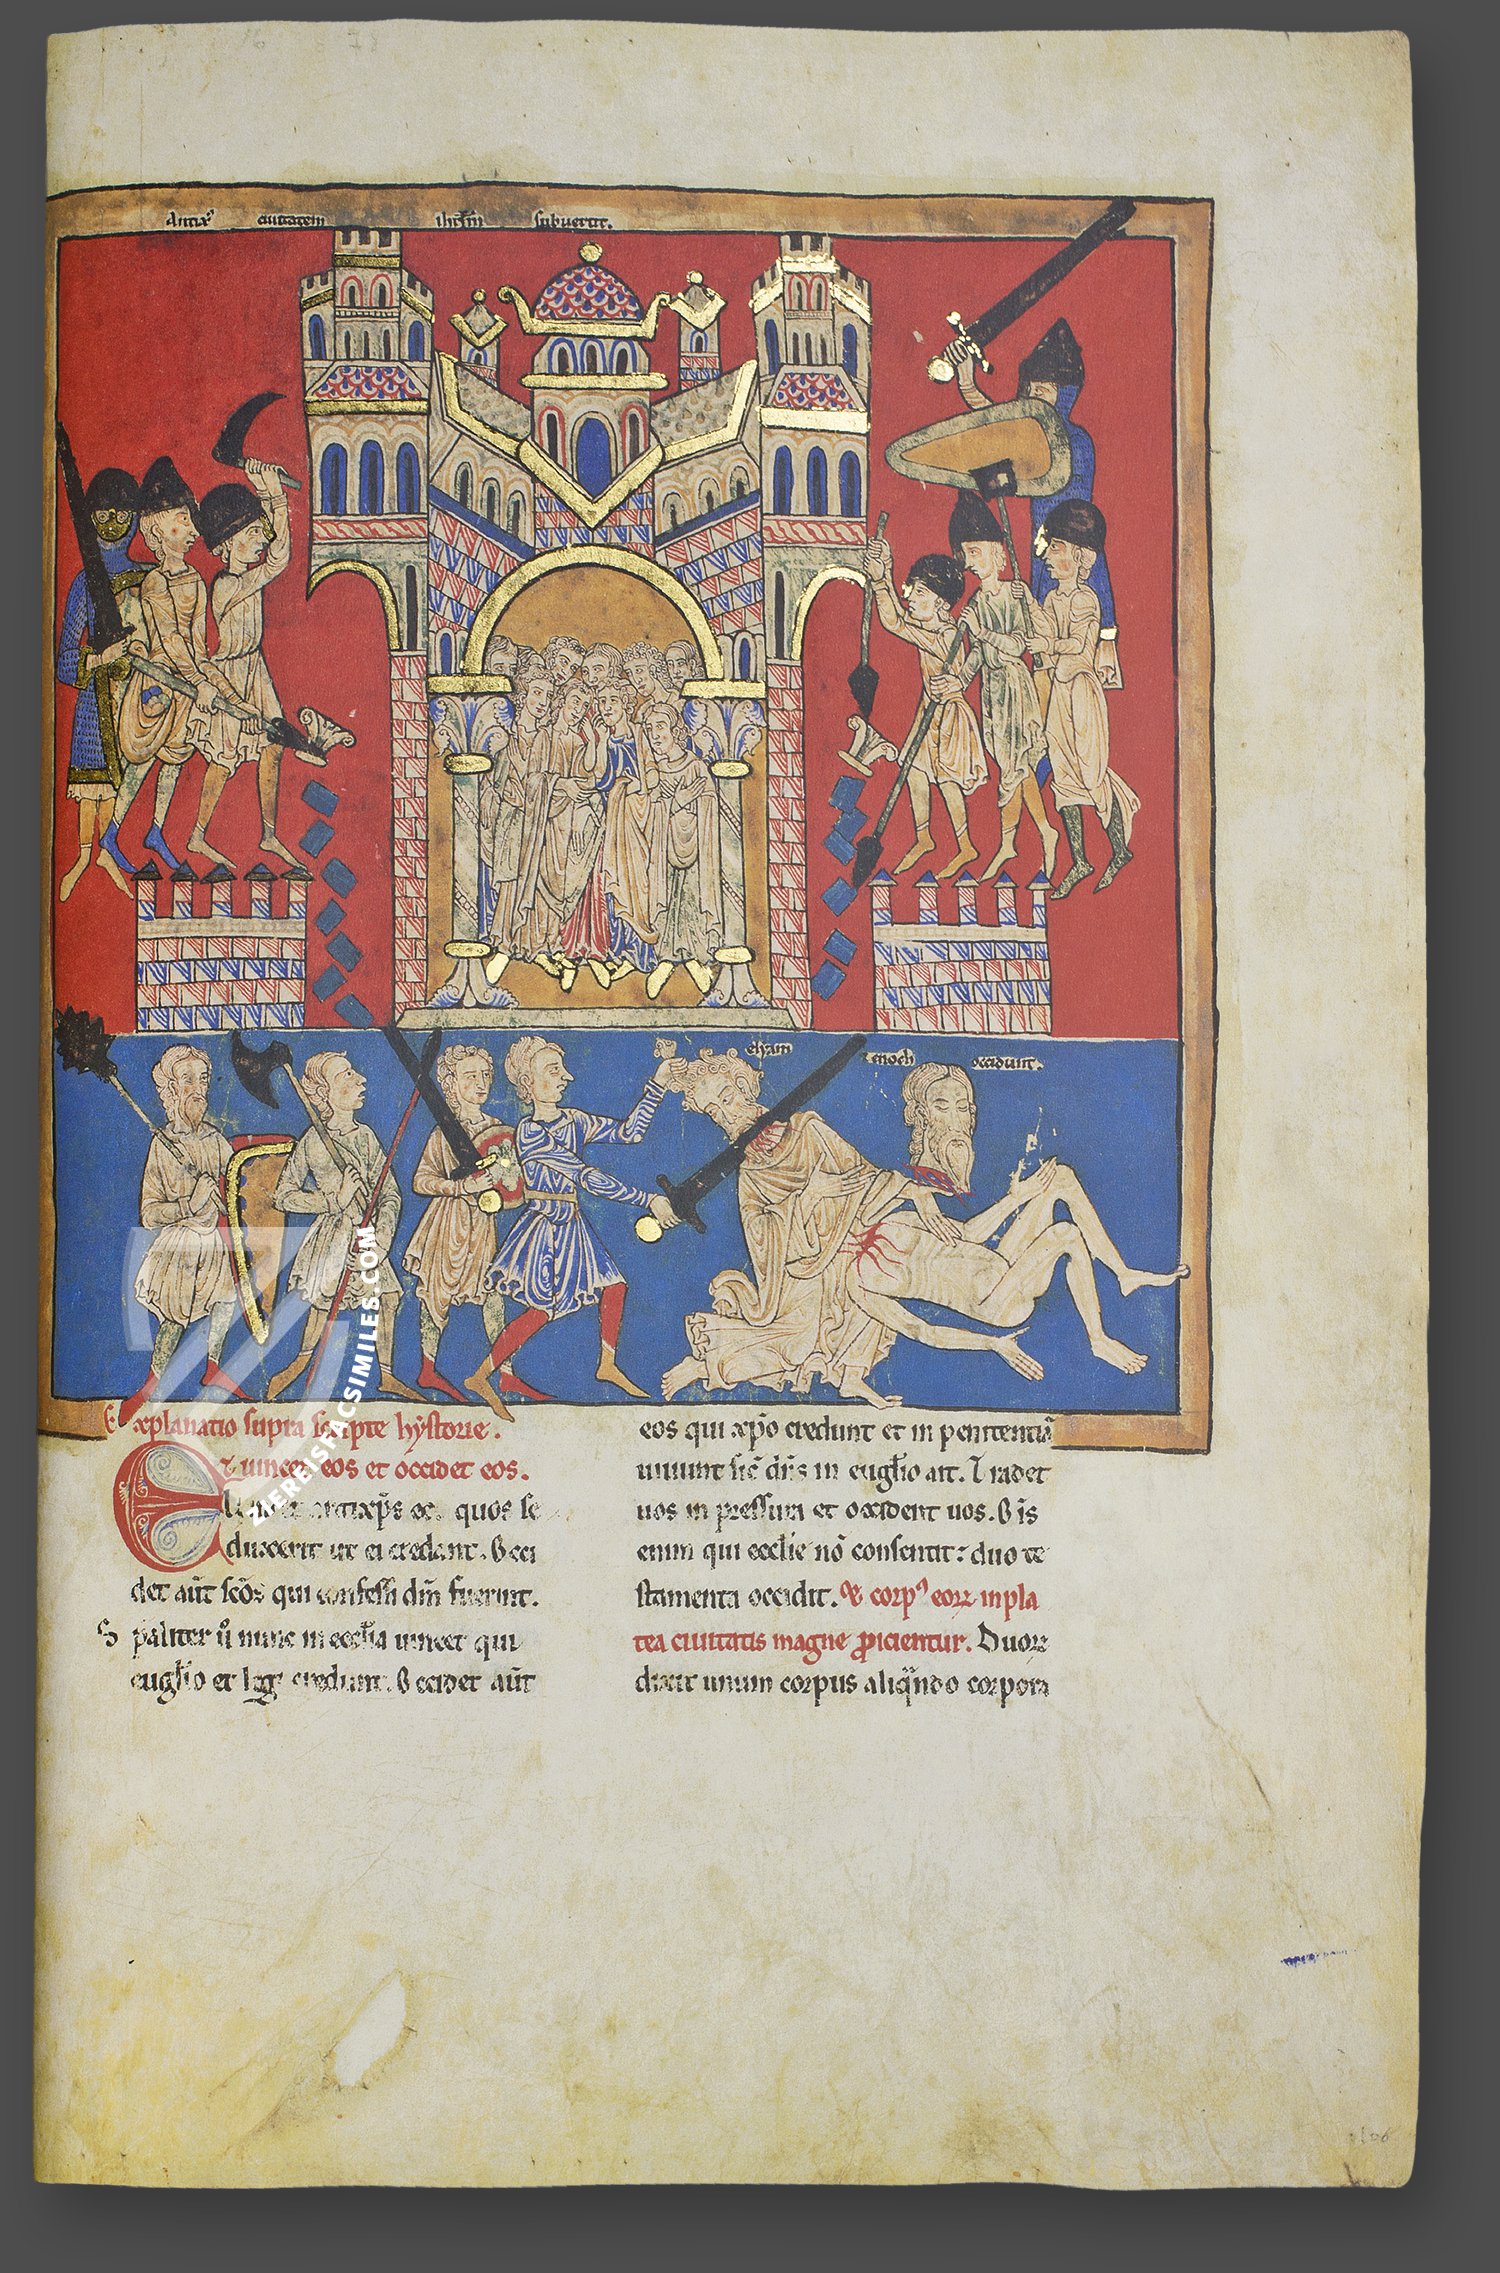 Antixp̄s ciuitatem ihrl̄m subuertit.
eliam enoch occidunt.
Explanatio supra scripte hystorie.
Et uincet eos et occidet eos.
quos se
duxerit ut ei credant. Occi
det aūt sc̄os qui confessi dn̄m fuerint.
Spaliter ū nunc in eccl̄ia uincet qui
eugl̄io et legi credunt. Occidet aūt
eos qui xp̄o credunt et in penitentiā
uiuunt sic̄ dn̄s in eugl̄io ait. Tradet
uos in pressura et occident uos. Oīs
enim qui ecclīe nō consentit: duo te
stamenta occidit. Et corpꝰ eoꝝ in pla
tea ciuitatis magne ꝓicientur. Duoꝝ
dixit unum corpus aliq̄ndo corpora
ZIEREISFACSIMILES.COM
106